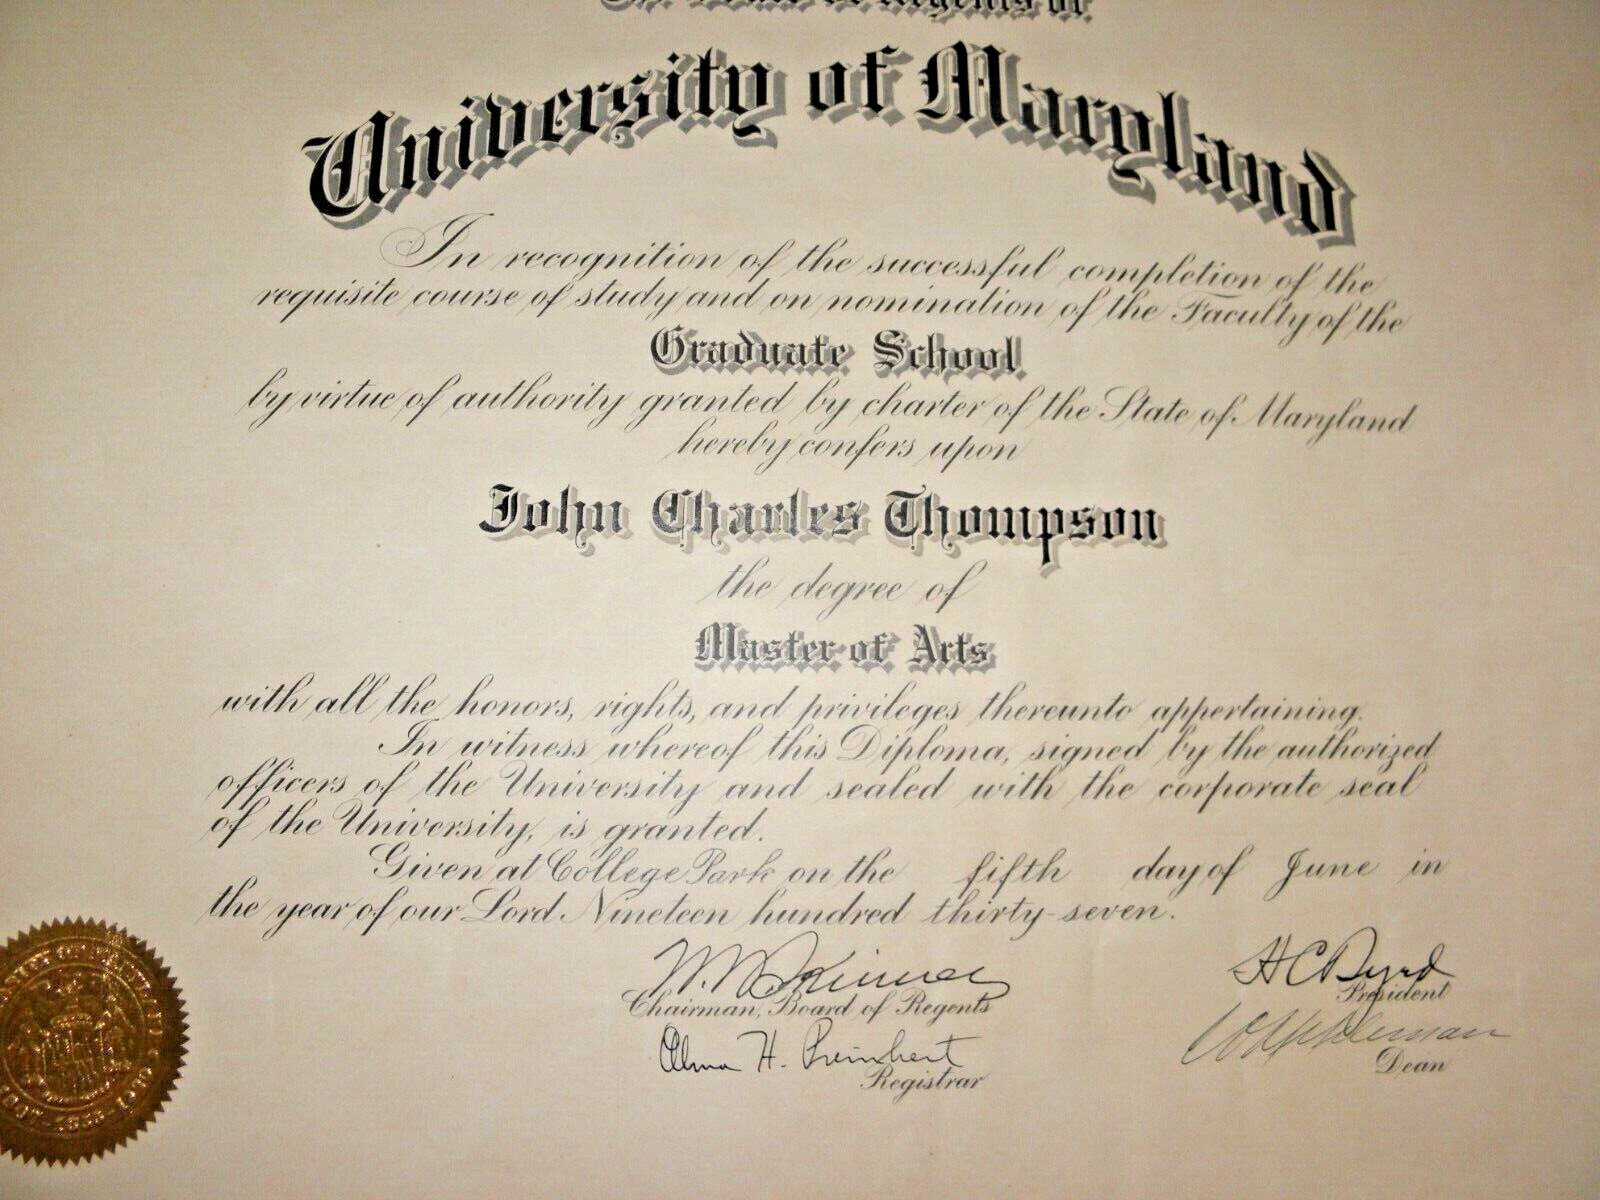 The Board of Regents of
University of Maryland
In recognition of the successful completion of the
requisite course of study and on nomination of the Faculty of the
Graduate School
by virtue of authority granted by charter of the State of Maryland
hereby confers upon
John Charles Thompson
the degree of
Master of Arts
with all the honors, rights, and privileges thereunto appertaining.
In witness whereof this Diploma, signed by the authorized
officers of the University and sealed with the corporate seal
of the University, is granted.
Given at College Park on the fifth day of June in
the year of our Lord Nineteen hundred thirty-seven.
W. W. Skinner
H C Byrd
Chairman, Board of Regents
President
Alma H. Preinkert
Registrar
Dean